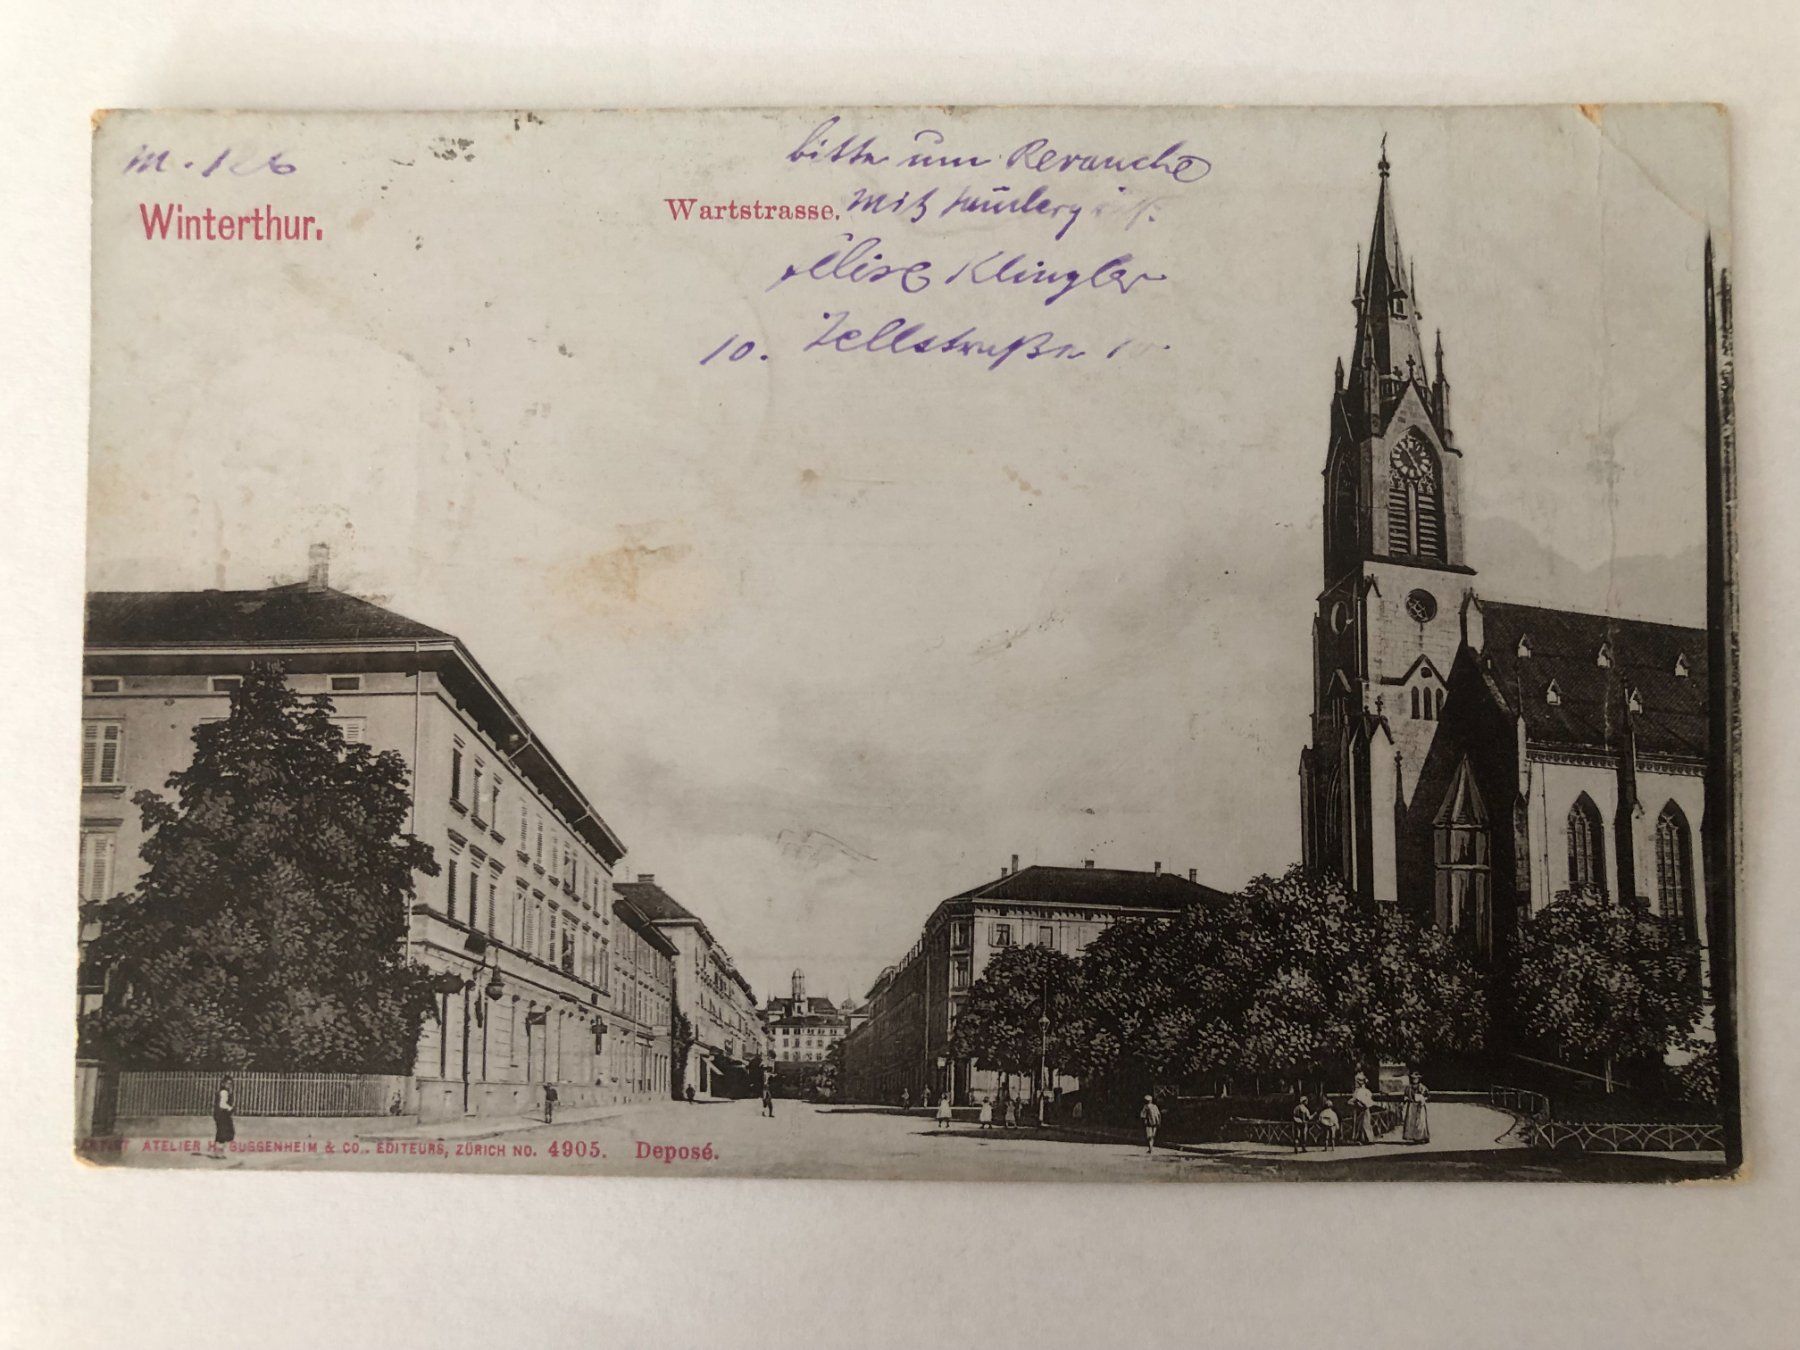 M. 126
bitte um Revanche
Winterthur.
Wartstrasse.
mit
Elise Klingler
10. Tellstraße 10.
ATELIER H. GUGGENHEIM & CO., EDITEURS, ZÜRICH NO. 4905. Deposé.